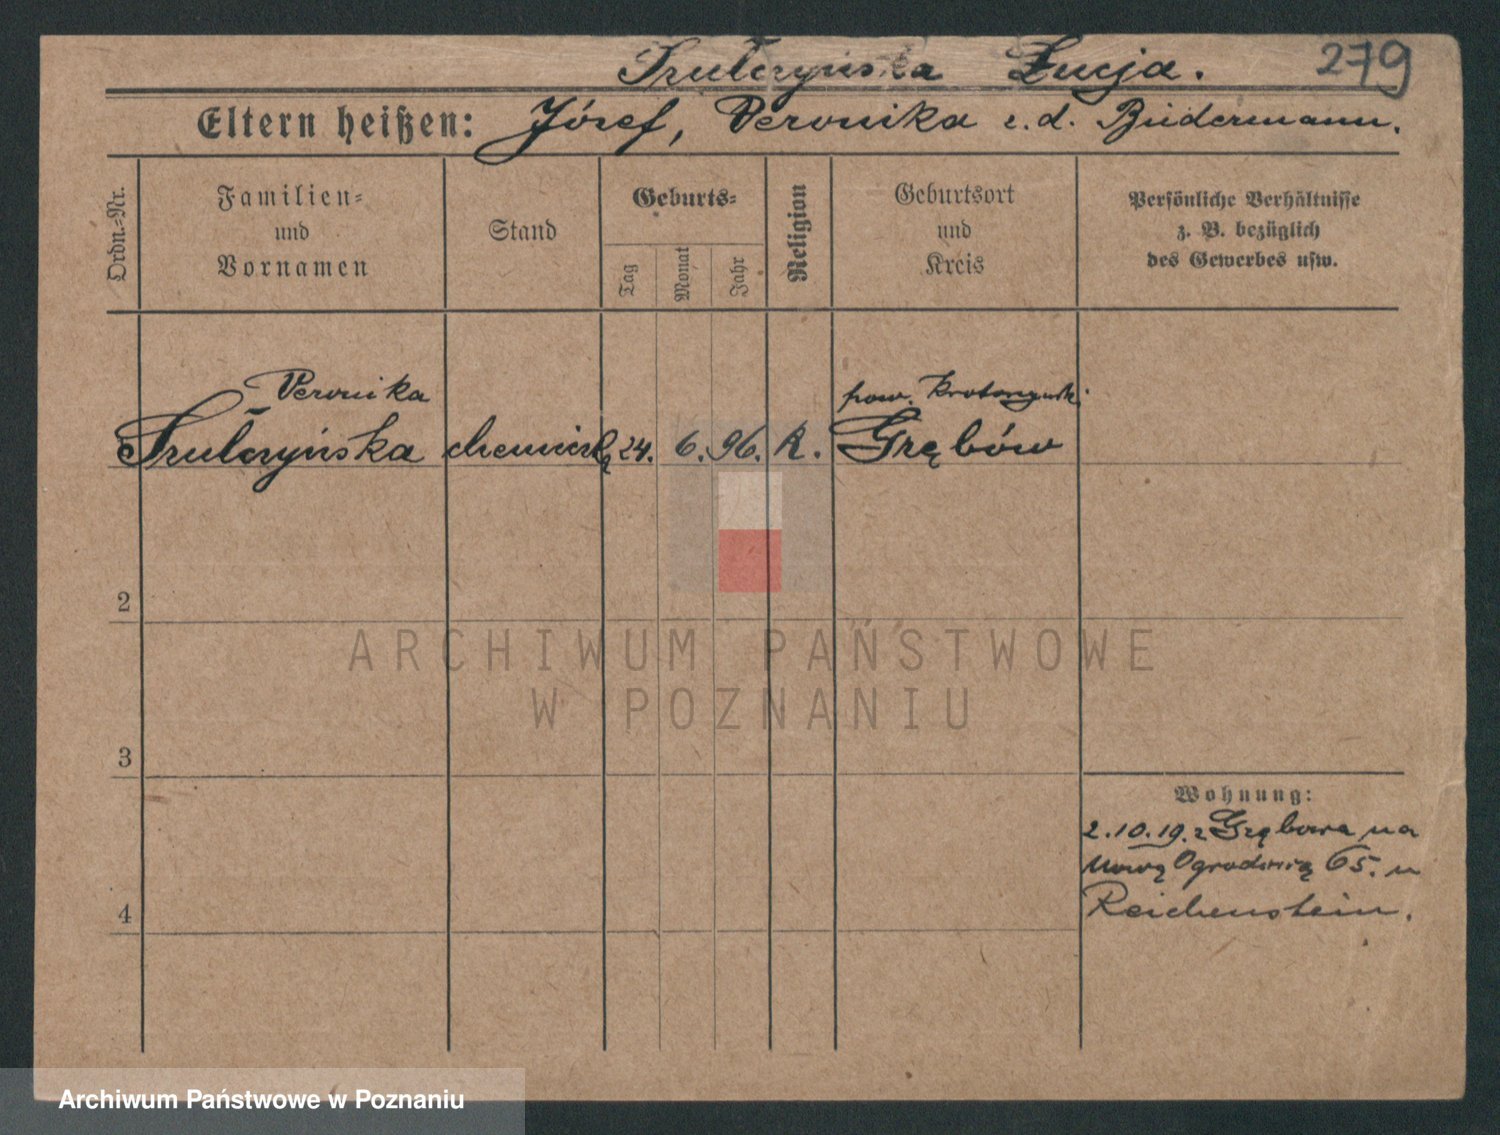 Szulczyńska Łucja.
279
Eltern heißen: Józef, Veronika z. d. Biedermann.
Ordn.-Nr.
Familien-
und
Vornamen
Stand
Geburts-
Tag
Monat
Jahr
Religion
Geburtsort
und
Kreis
Persönliche Verhältnisse
z. B. bezüglich
des Gewerbes usw.
Veronika
Szulczyńska
24. 6. 96. R.
pow.
Grębów
2
3
4
Wohnung:
2.10.19. z Grębowa na
Nową Ogrodnią 65. u
Reichenstein.
ARCHIWUM PAŃSTWOWE
W POZNANIU
Archiwum Państwowe w Poznaniu